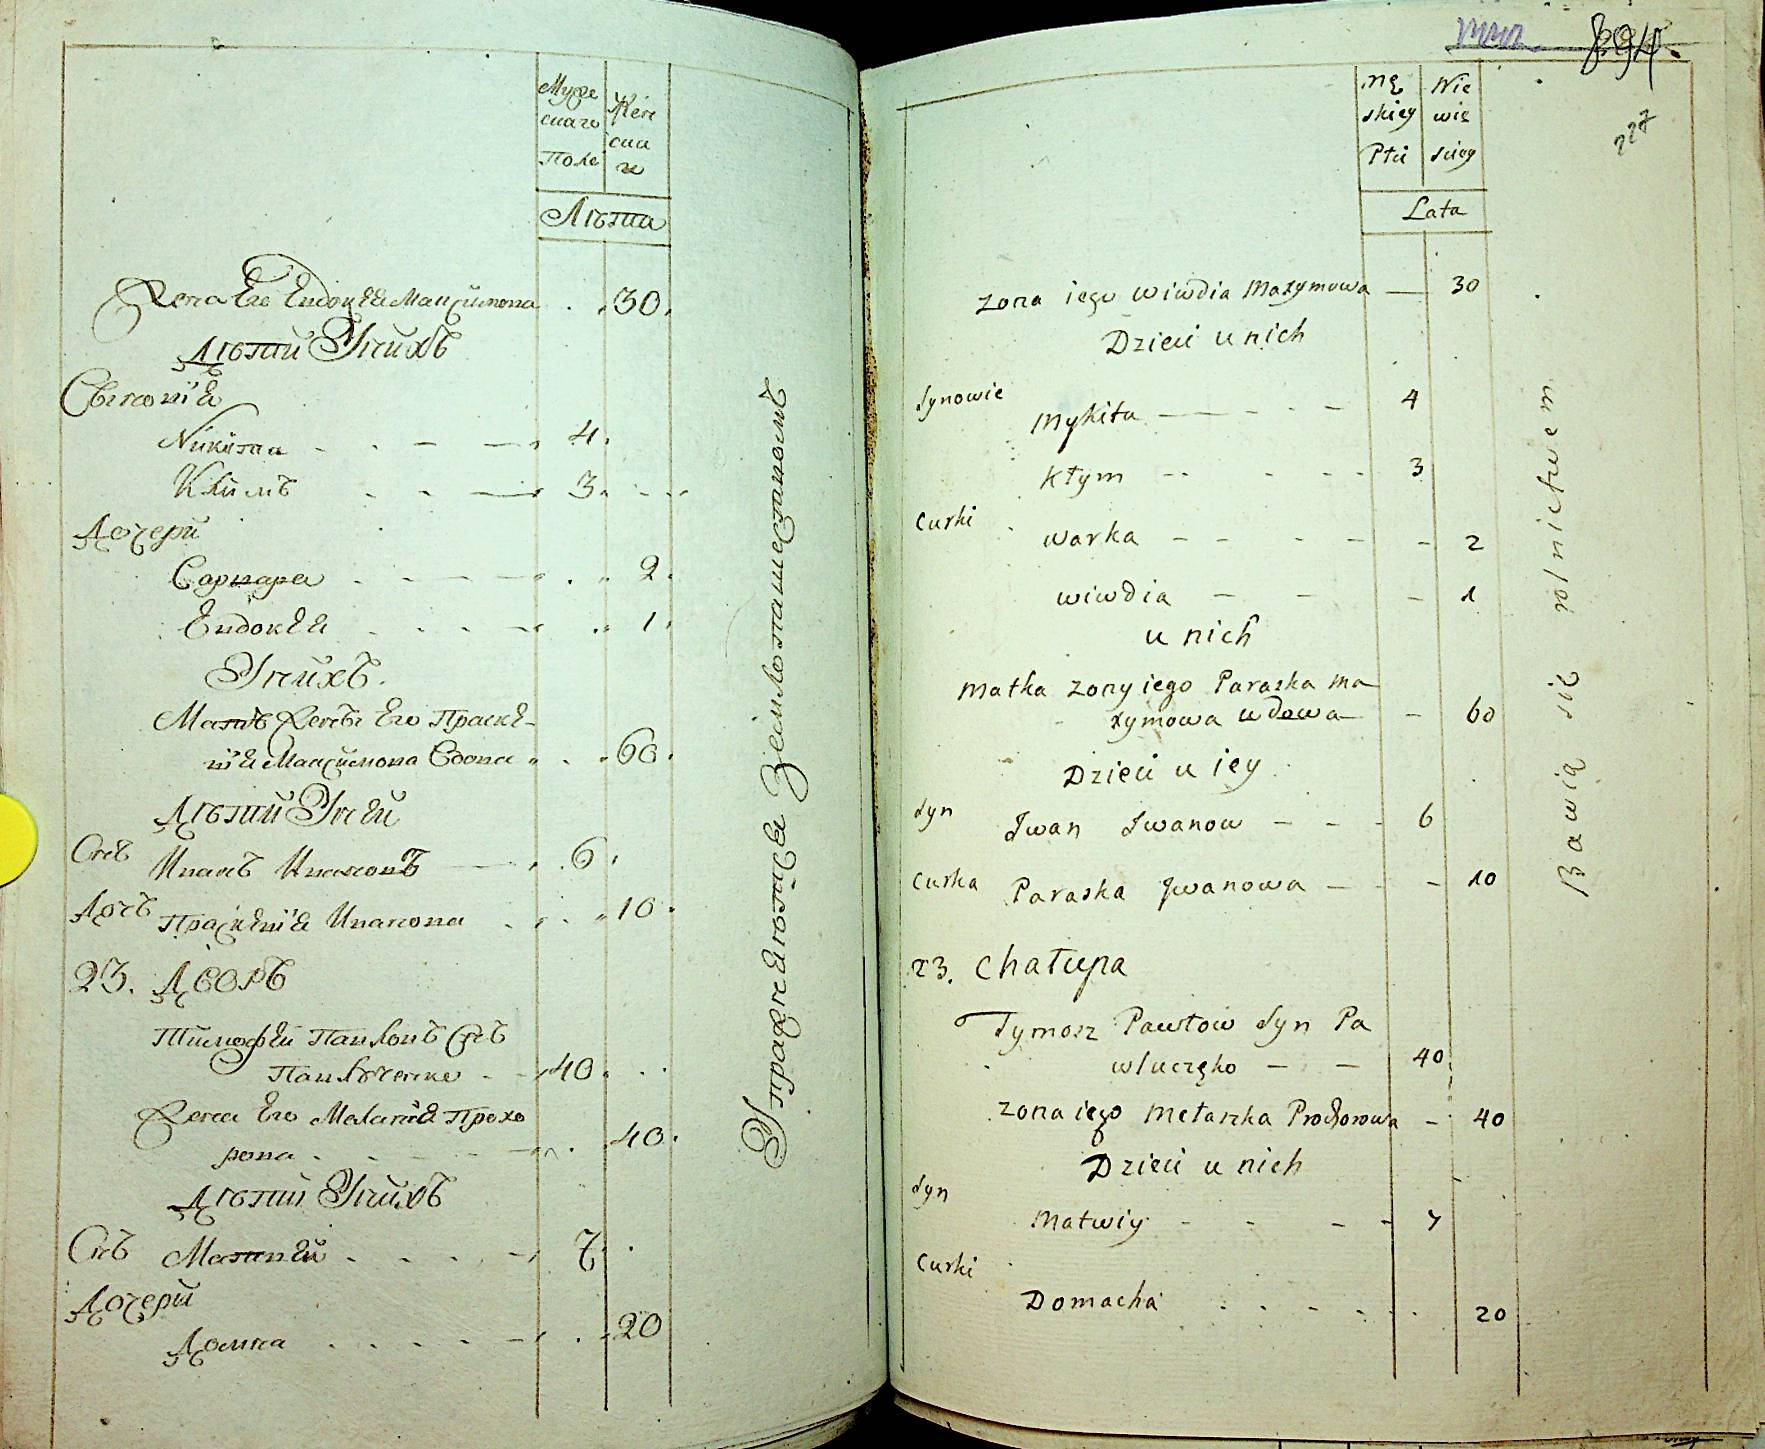 Мужескаго Пола
Женскаг
Лѣта
Жена Его Евдокѣя Максимова 30
Дѣтй Унихъ
Сыновія
Никита 4
Климъ 3
Дочери
Варвара 2
Евдокѣя 1
Унихъ
Мать Жены Его Праскѣ-
вія Максимова Вдова 60
Дѣтй Унѣй
Снъ Иванъ Ивановъ 6
Дочь Праскѣвія Иванова 10
23. Дворъ
Тимофѣй Павловъ Снъ
Павлученко 40
Жена Его Меланія Прохо
рова 40
Дѣтй Унихъ
Снъ Матвѣй 7
Дочери
Домна 20
Упражняютца Землепашествомъ
894.
227
Mę
skiey
Płci
Nie
wie
sciey
Lata
zona iego wiwdia Maxymowa 30
Dzieci u nich
synowie
Mykita 4
Kłym 3
Curki
warka 2
wiwdia 1
u nich
Matka zony iego Paraska Ma
xymowa wdowa 60
Dzieci u iey
syn Iwan Iwanow 6
Curka Paraska Iwanowa 10
23. Chałupa
Tymosz Pawłow syn Pa
wluczęko 40
zona iego Mełaszka Prochorowa 40
Dzieci u nich
syn
Matwiy 7
Curki
Domacha 20
Bawią się rolnictwem